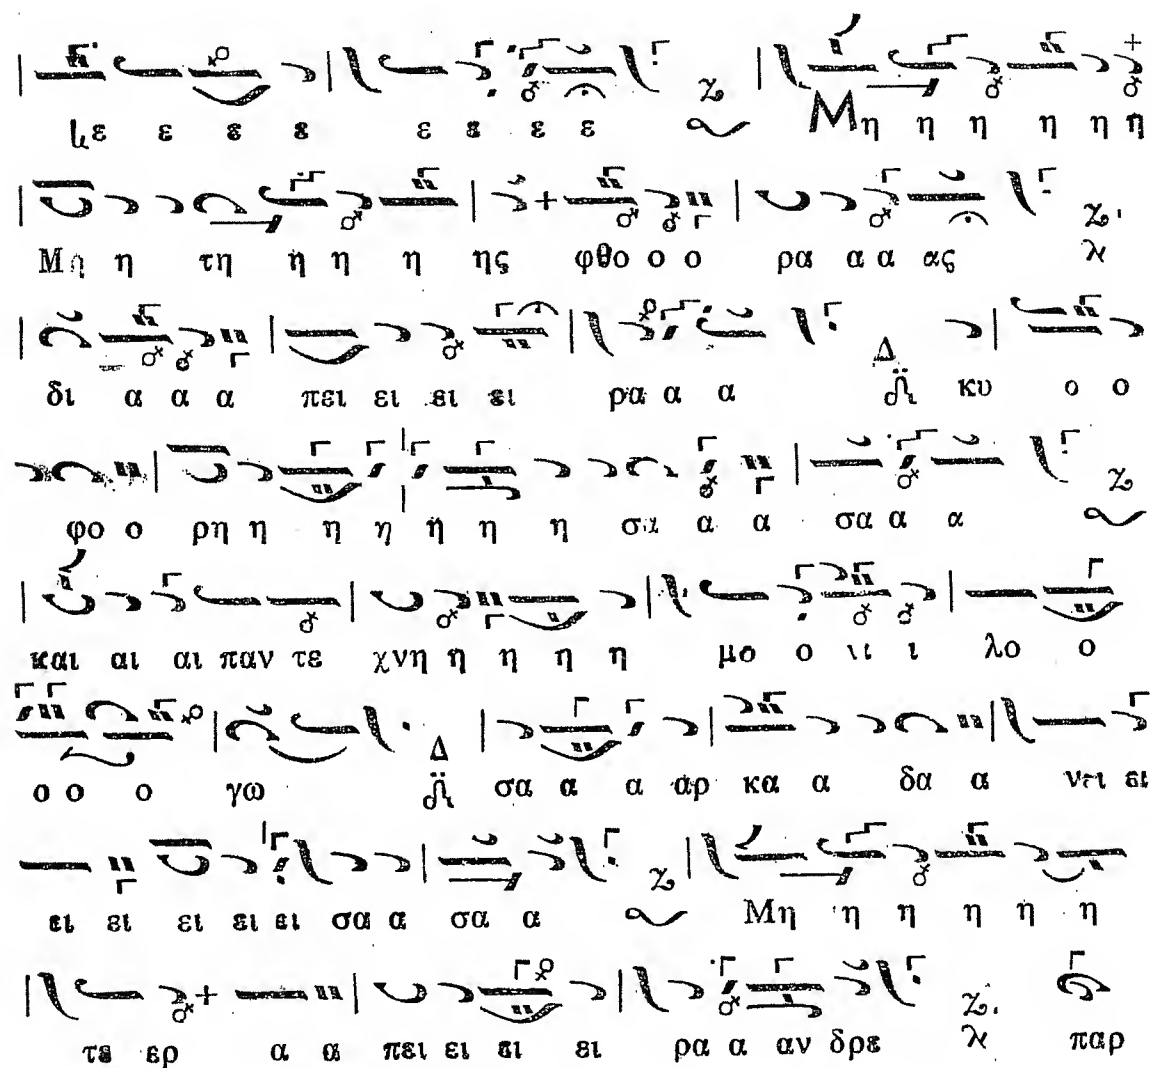 ε ε ε ε ε ε ε Μη η η η η η
Μη η τη η η η ης φθο ο ο ρα α α ας
δι α α α πει ει ει ει ρα α α Δ κυ ο ο
φο ο ρη η η η η η η σα α α σα α α
και αι αι παν τε χνη η η η η μο ο ι ι λο ο
ο ο ο γω Δ σα α α αρ κα α δα α νει ει
ει ει ει ει ει σα α σα α Μη η η η η η
τε ερ α α πει ει ει ει ρα α αν δρε παρ